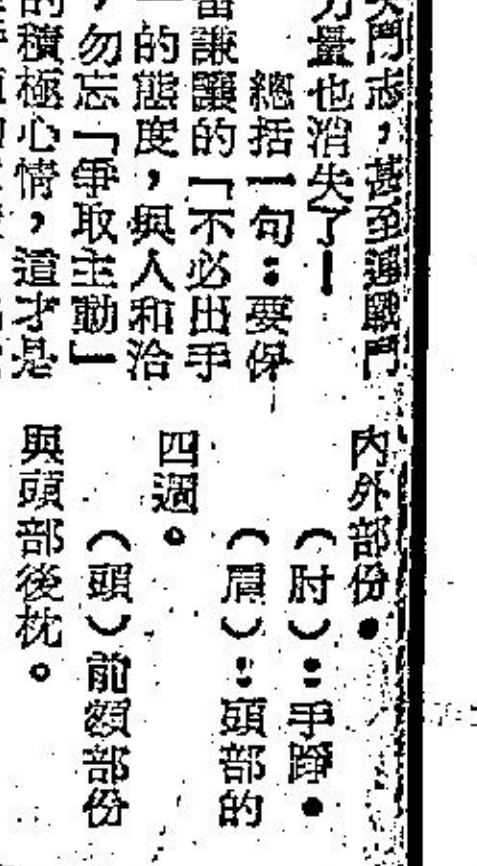 鬥志，甚至連戰鬥
力量也消失了—
總括一句：要保
謙讓的「不必出手
」的態度，與人和洽
，勿忘「爭取主動」
的積極心情，這才是
內外部份。
（肘）：手踭。
（肩）：頭部的
四週。
（頭）前額部份
與頭部後枕。